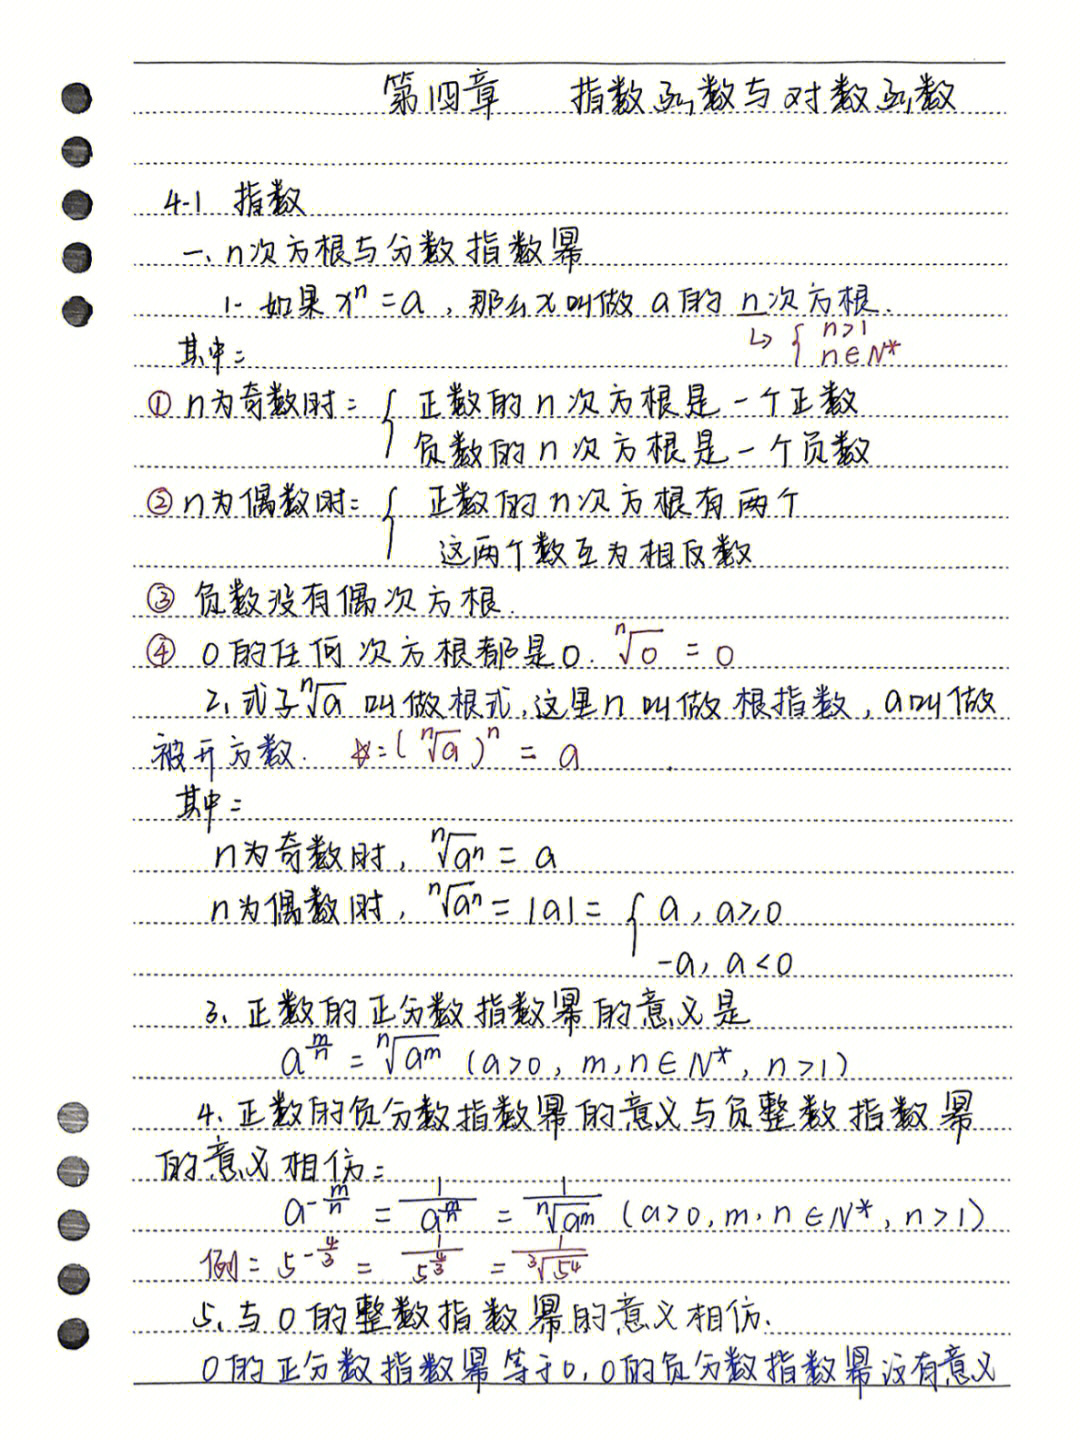 第四章 指数函数与对数函数
4-1 指数
一、n次方根与分数指数幂
1. 如果 xⁿ = a , 那么 x 叫做 a 的 n次方根.
↳ { n>1
n∈N*
其中:
① n为奇数时: { 正数的 n 次方根是一个正数
负数的 n 次方根是一个负数
② n为偶数时: { 正数的 n 次方根有两个
这两个数互为相反数
③ 负数没有偶次方根.
④ 0的任何次方根都是0. ⁿ√0 = 0
2、式子ⁿ√a 叫做根式,这里n叫做根指数, a叫做
被开方数. ☆:(ⁿ√a)ⁿ = a
其中:
n为奇数时, ⁿ√aⁿ = a
n为偶数时, ⁿ√aⁿ = |a| = { a, a≥0
-a, a<0
3、正数的正分数指数幂的意义是
a^(m/n) = ⁿ√aᵐ (a>0, m,n∈N*, n>1)
4、正数的负分数指数幂的意义与负整数指数幂
的意义相仿:
a^(-m/n) = 1/a^(m/n) = 1/ⁿ√aᵐ (a>0, m,n∈N*, n>1)
例: 5^(-4/3) = 1/5^(4/3) = 1/³√5⁴
5、与0的整数指数幂的意义相仿.
0的正分数指数幂等于0, 0的负分数指数幂没有意义